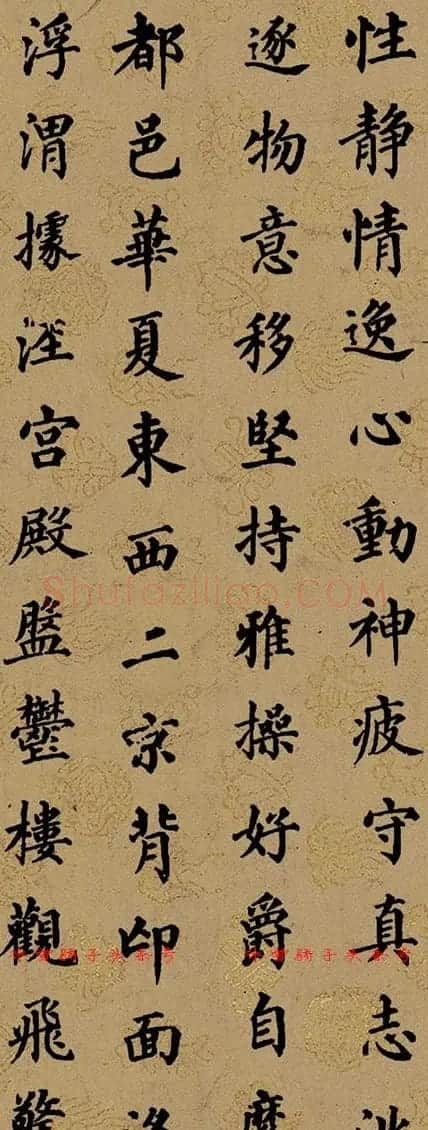 性静情逸心動神疲守真志
逐物意移堅持雅操好爵自
都邑華夏東西二京背邙面
浮渭據涇宫殿盤鬱樓觀飛
Shufaziliao.COM